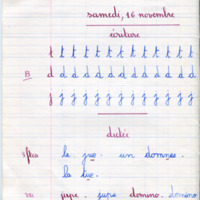 samedi, 16 novembre
écriture
t t t t t t t t t t t t t
B d d d d d d d d d d d d d
j j j j j j j j j j j j j
dictée
le jus. un domnes.
la
jupe. jupe domino. domino